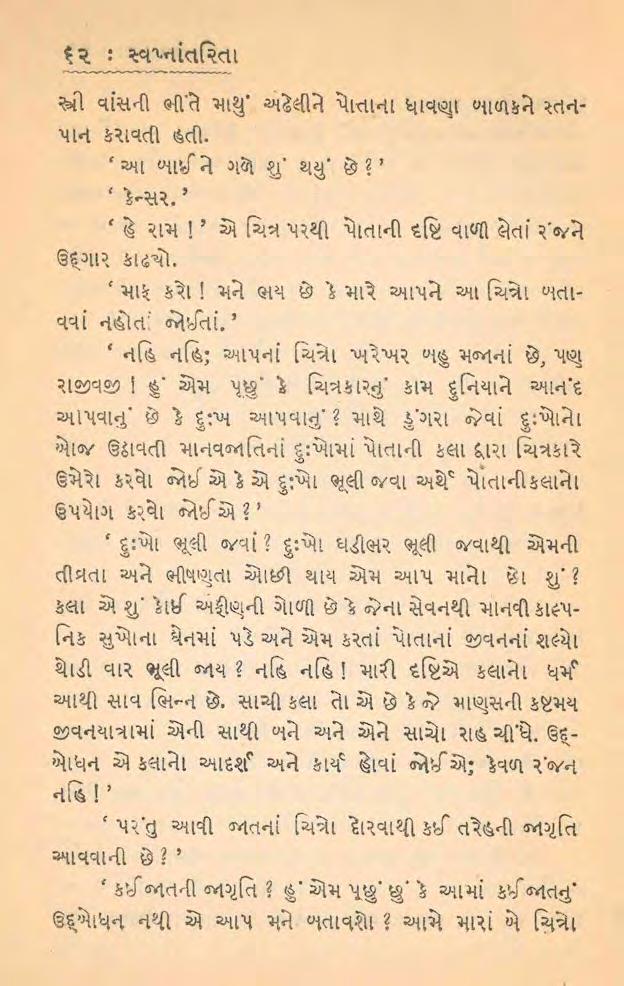 ૬૨ : સ્વપ્નાંતરિતા
સ્ત્રી વાંસની ભીંતે માથું અઢેલીને પોતાના ધાવણા બાળકને સ્તન-
પાન કરાવતી હતી.
‘ આ બાઈ ને ગળે શું થયું છે ? ’
‘ કેન્સર. ’
‘ હે રામ ! ’ એ ચિત્ર પરથી પોતાની દૃષ્ટિ વાળી લેતાં રંજને
ઉદ્ગાર કાઢયો.
‘ માફ કરો ! મને ભય છે કે મારે આપને આ ચિત્રો બતા-
વવાં નહોતાં જોઈતાં. ’
‘ નહિ નહિ; આપનાં ચિત્રો ખરેખર બહુ મજાનાં છે, પણ
રાજીવજી ! હું એમ પૂછું કે ચિત્રકારનું કામ દુનિયાને આનંદ
આપવાનું છે કે દુઃખ આપવાનું ? માથે ડુંગરા જેવાં દુઃખોનો
બોજ ઉઠાવતી માનવજાતિનાં દુઃખોમાં પોતાની કલા દ્વારા ચિત્રકારે
ઉમેરો કરવો જોઈ એ કે એ દુઃખો ભૂલી જવા અર્થે પોતાનીકલાનો
ઉપયોગ કરવો જોઈ એ ? ’
‘ દુઃખો ભૂલી જવાં ? દુઃખો ઘડીભર ભૂલી જવાથી એમની
તીવ્રતા અને ભીષણતા ઓછી થાય એમ આપ માનો છો શું ?
કલા એ શું કોઈ અફીણની ગોળી છે કે જેના સેવનથી માનવી કાલ્પ-
નિક સુખોના ઘેનમાં પડે અને એમ કરતાં પોતાનાં જીવનનાં શલ્યો
થોડી વાર ભૂલી જાય ? નહિ નહિ ! મારી દૃષ્ટિએ કલાનો ધર્મ
આથી સાવ ભિન્ન છે. સાચી કલા તો એ છે કે જે માણસની કષ્ટમય
જીવનયાત્રામાં એની સાથી બને અને એને સાચો રાહ ચીંધે. ઉદ્-
બોધન એ કલાનો આદર્શ અને કાર્ય હોવાં જોઈ એ; કેવળ રંજન
નહિ ! ’
‘ પરંતુ આવી જાતનાં ચિત્રો દોરવાથી કઈ તરેહની જાગૃતિ
આવવાની છે ? ’
‘ કઈ જાતની જાગૃતિ ? હું એમ પૂછું છું કે આમાં કઈ જાતનું
ઉદ્બોધન નથી એ આપ મને બતાવશો ? આમે મારાં બે ચિત્રો